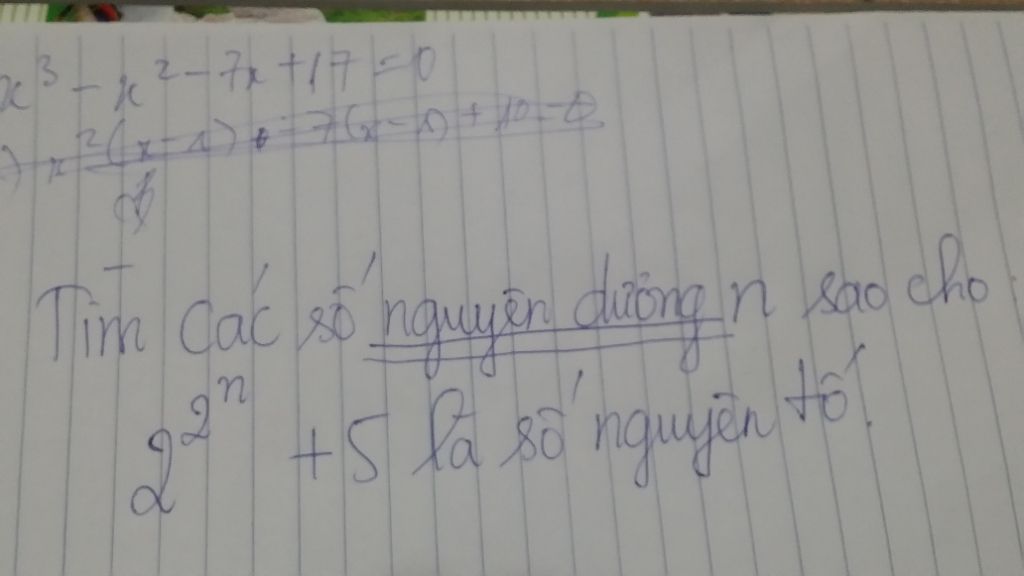 x³ - x² - 7x + 17 = 0
x²(x-1) - 7(x-1) + 10 = 0
Tìm các số nguyên dương n sao cho
2^2^n + 5 là số nguyên tố.